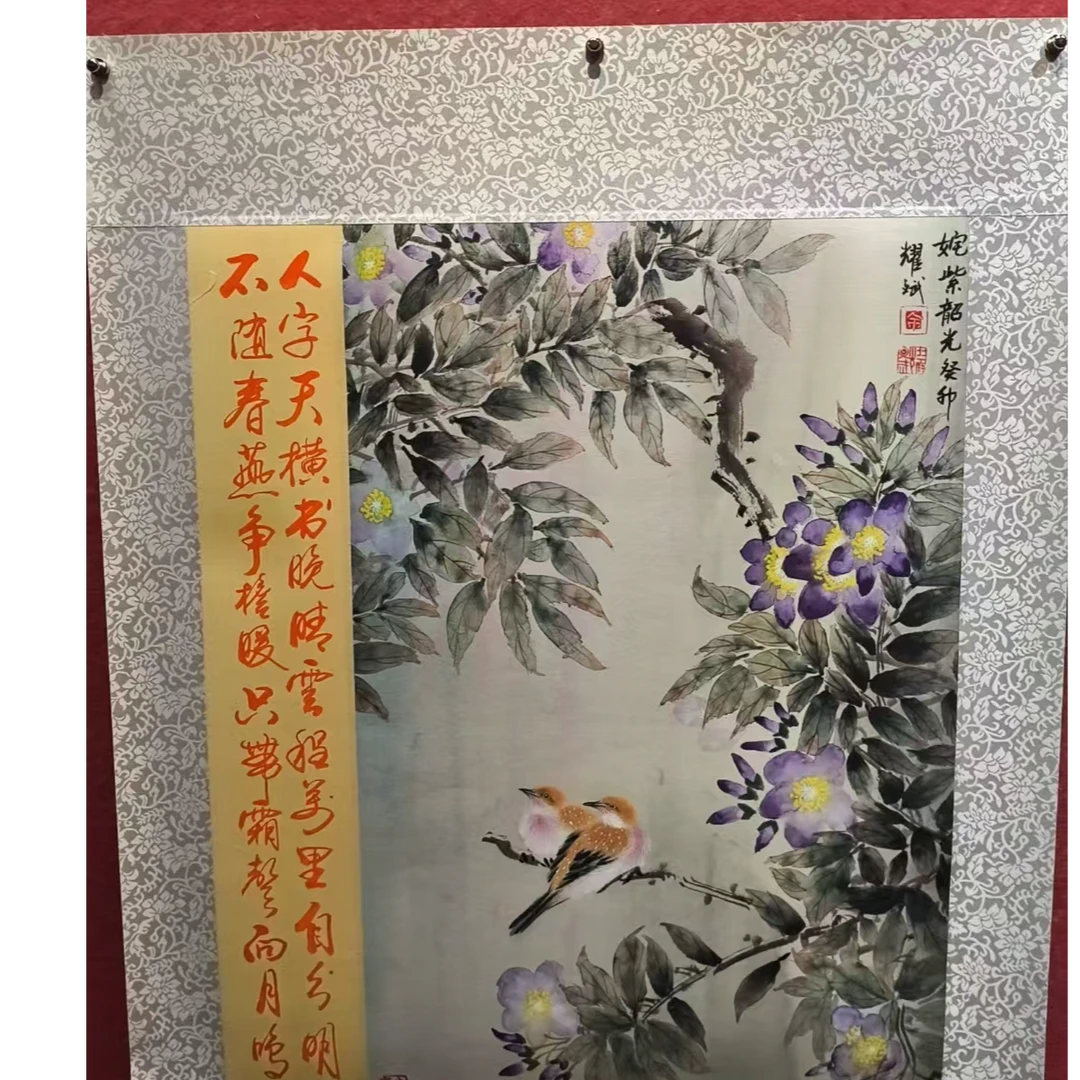 姹紫韶光癸卯
耀斌
人字天横书晚晴雲程万里自分明
不随春燕争檐暖只带霜声向月鸣